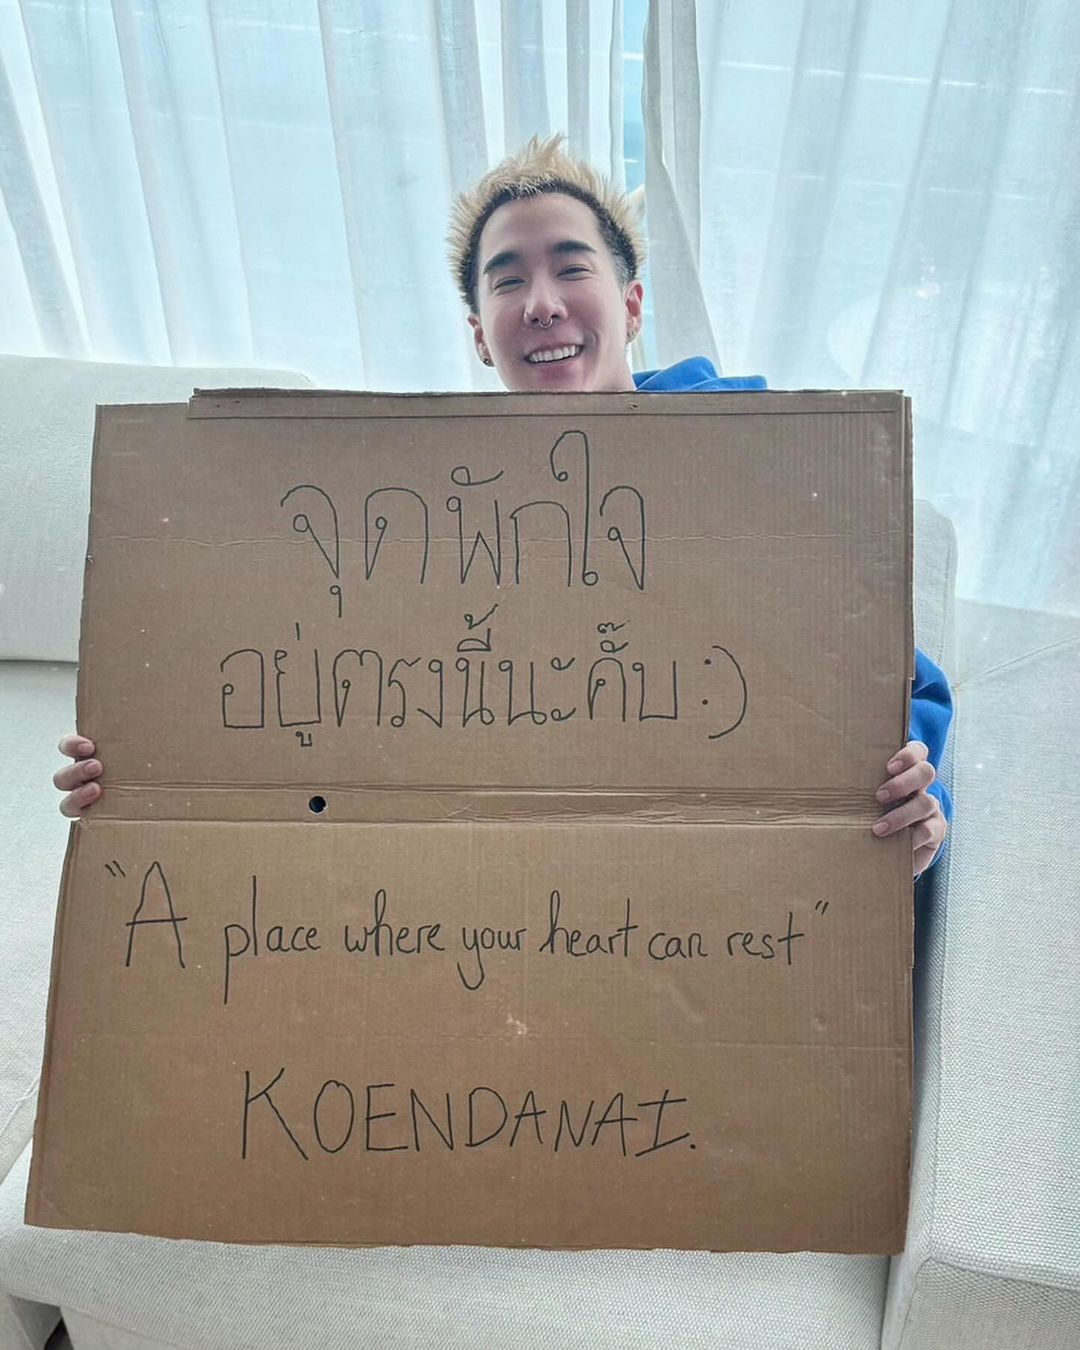 จุดพักใจ
อยู่ตรงนี้นะคั๊บ :)
"A place where your heart can rest"
KOENDANAI.